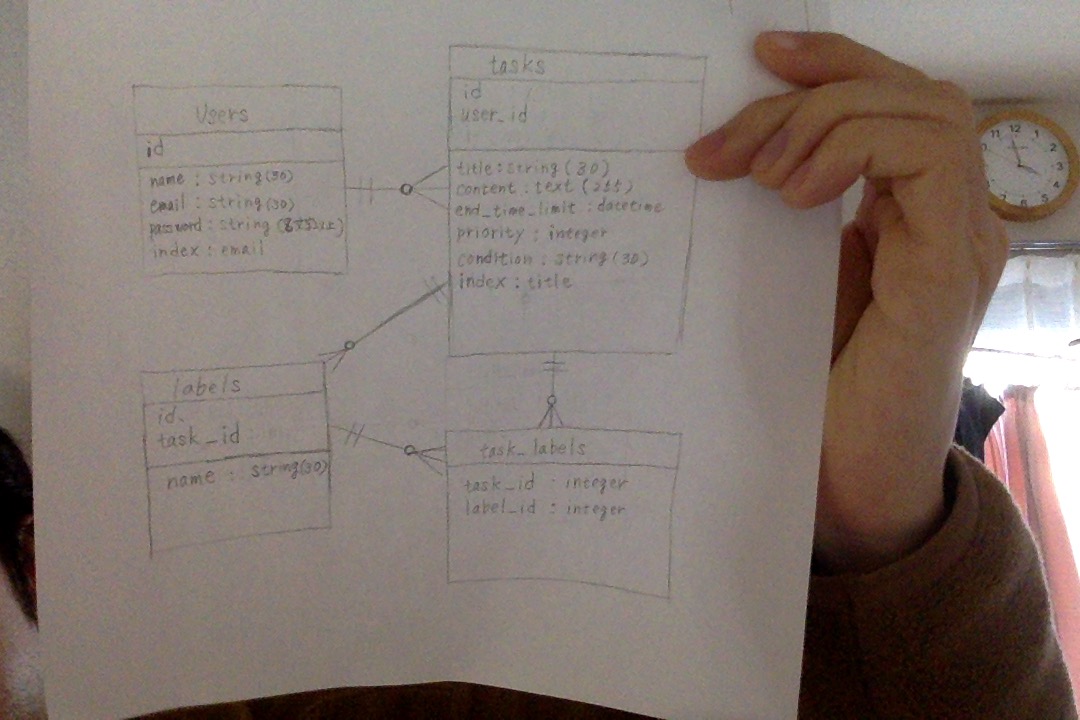 Users
id
name : string(30)
email : string(30)
password : string
index : email
tasks
id
user_id
title : string(30)
content : text
end_time_limit : datetime
priority : integer
condition : string(30)
index : title
labels
id
task_id
name : string(30)
task_labels
task_id : integer
label_id : integer
12
1
2
3
4
5